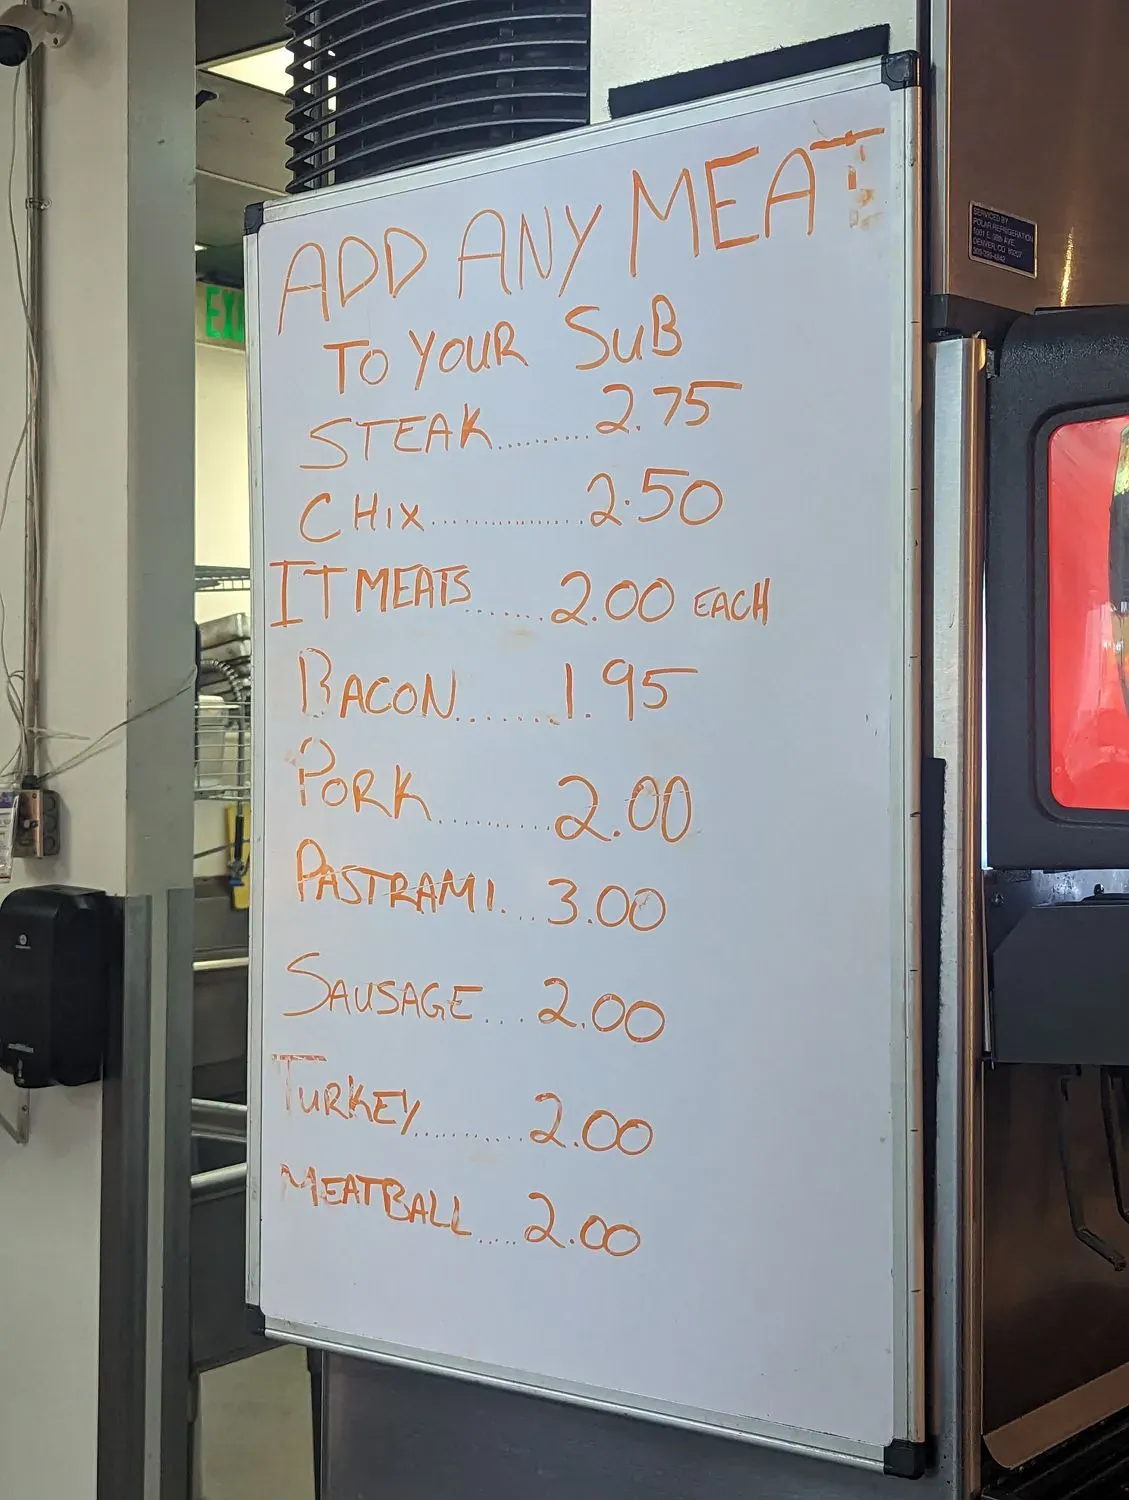 ADD ANY MEAT
TO YOUR SUB
STEAK......... 2.75
CHIX................ 2.50
IT MEATS...... 2.00 EACH
BACON....... 1.95
PORK.......... 2.00
PASTRAMI... 3.00
SAUSAGE... 2.00
TURKEY.......... 2.00
MEATBALL..... 2.00
EXI
SERVICED BY
POLAR REFRIGERATION
DENVER, CO 80207